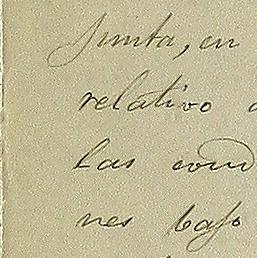 Junta, en
relativo a
las cond
nes bajo